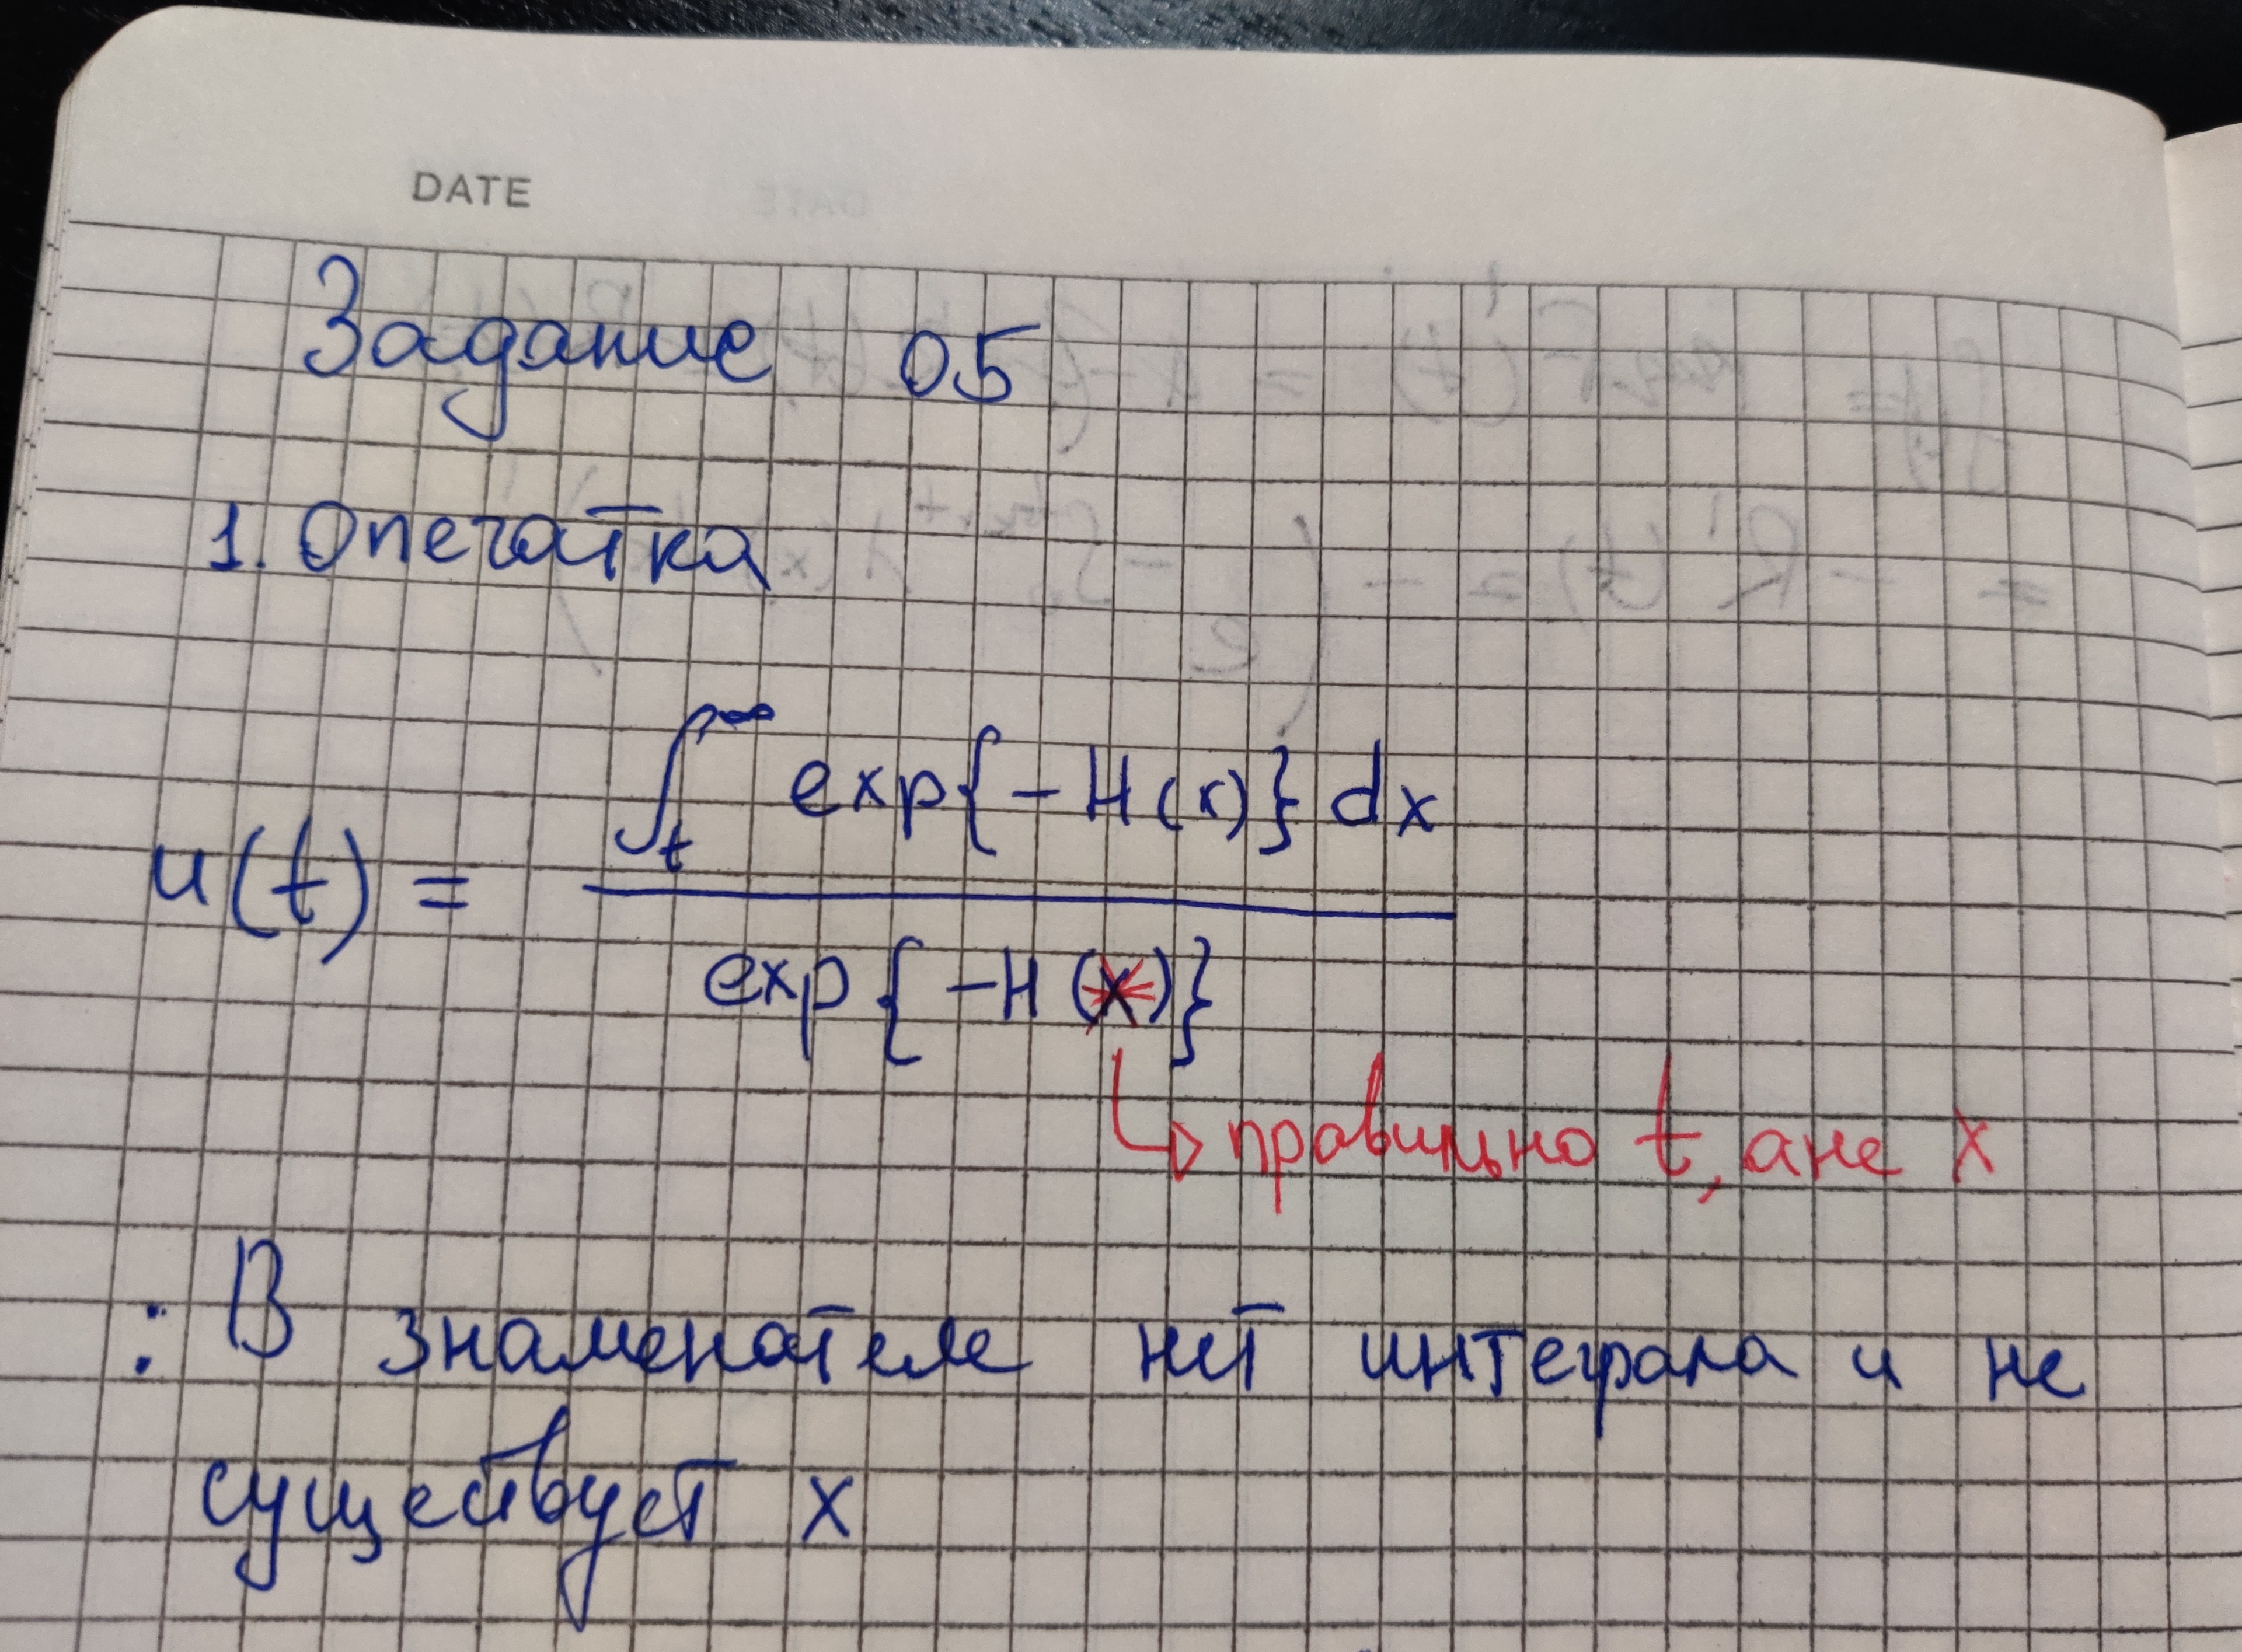 DATE
Задание 05
1. Опечатка
u(t) = ∫_t^∞ exp{-H(x)}dx / exp{-H(x)}
правильно t, а не x
: В знаменателе нет интеграла и не
существует x